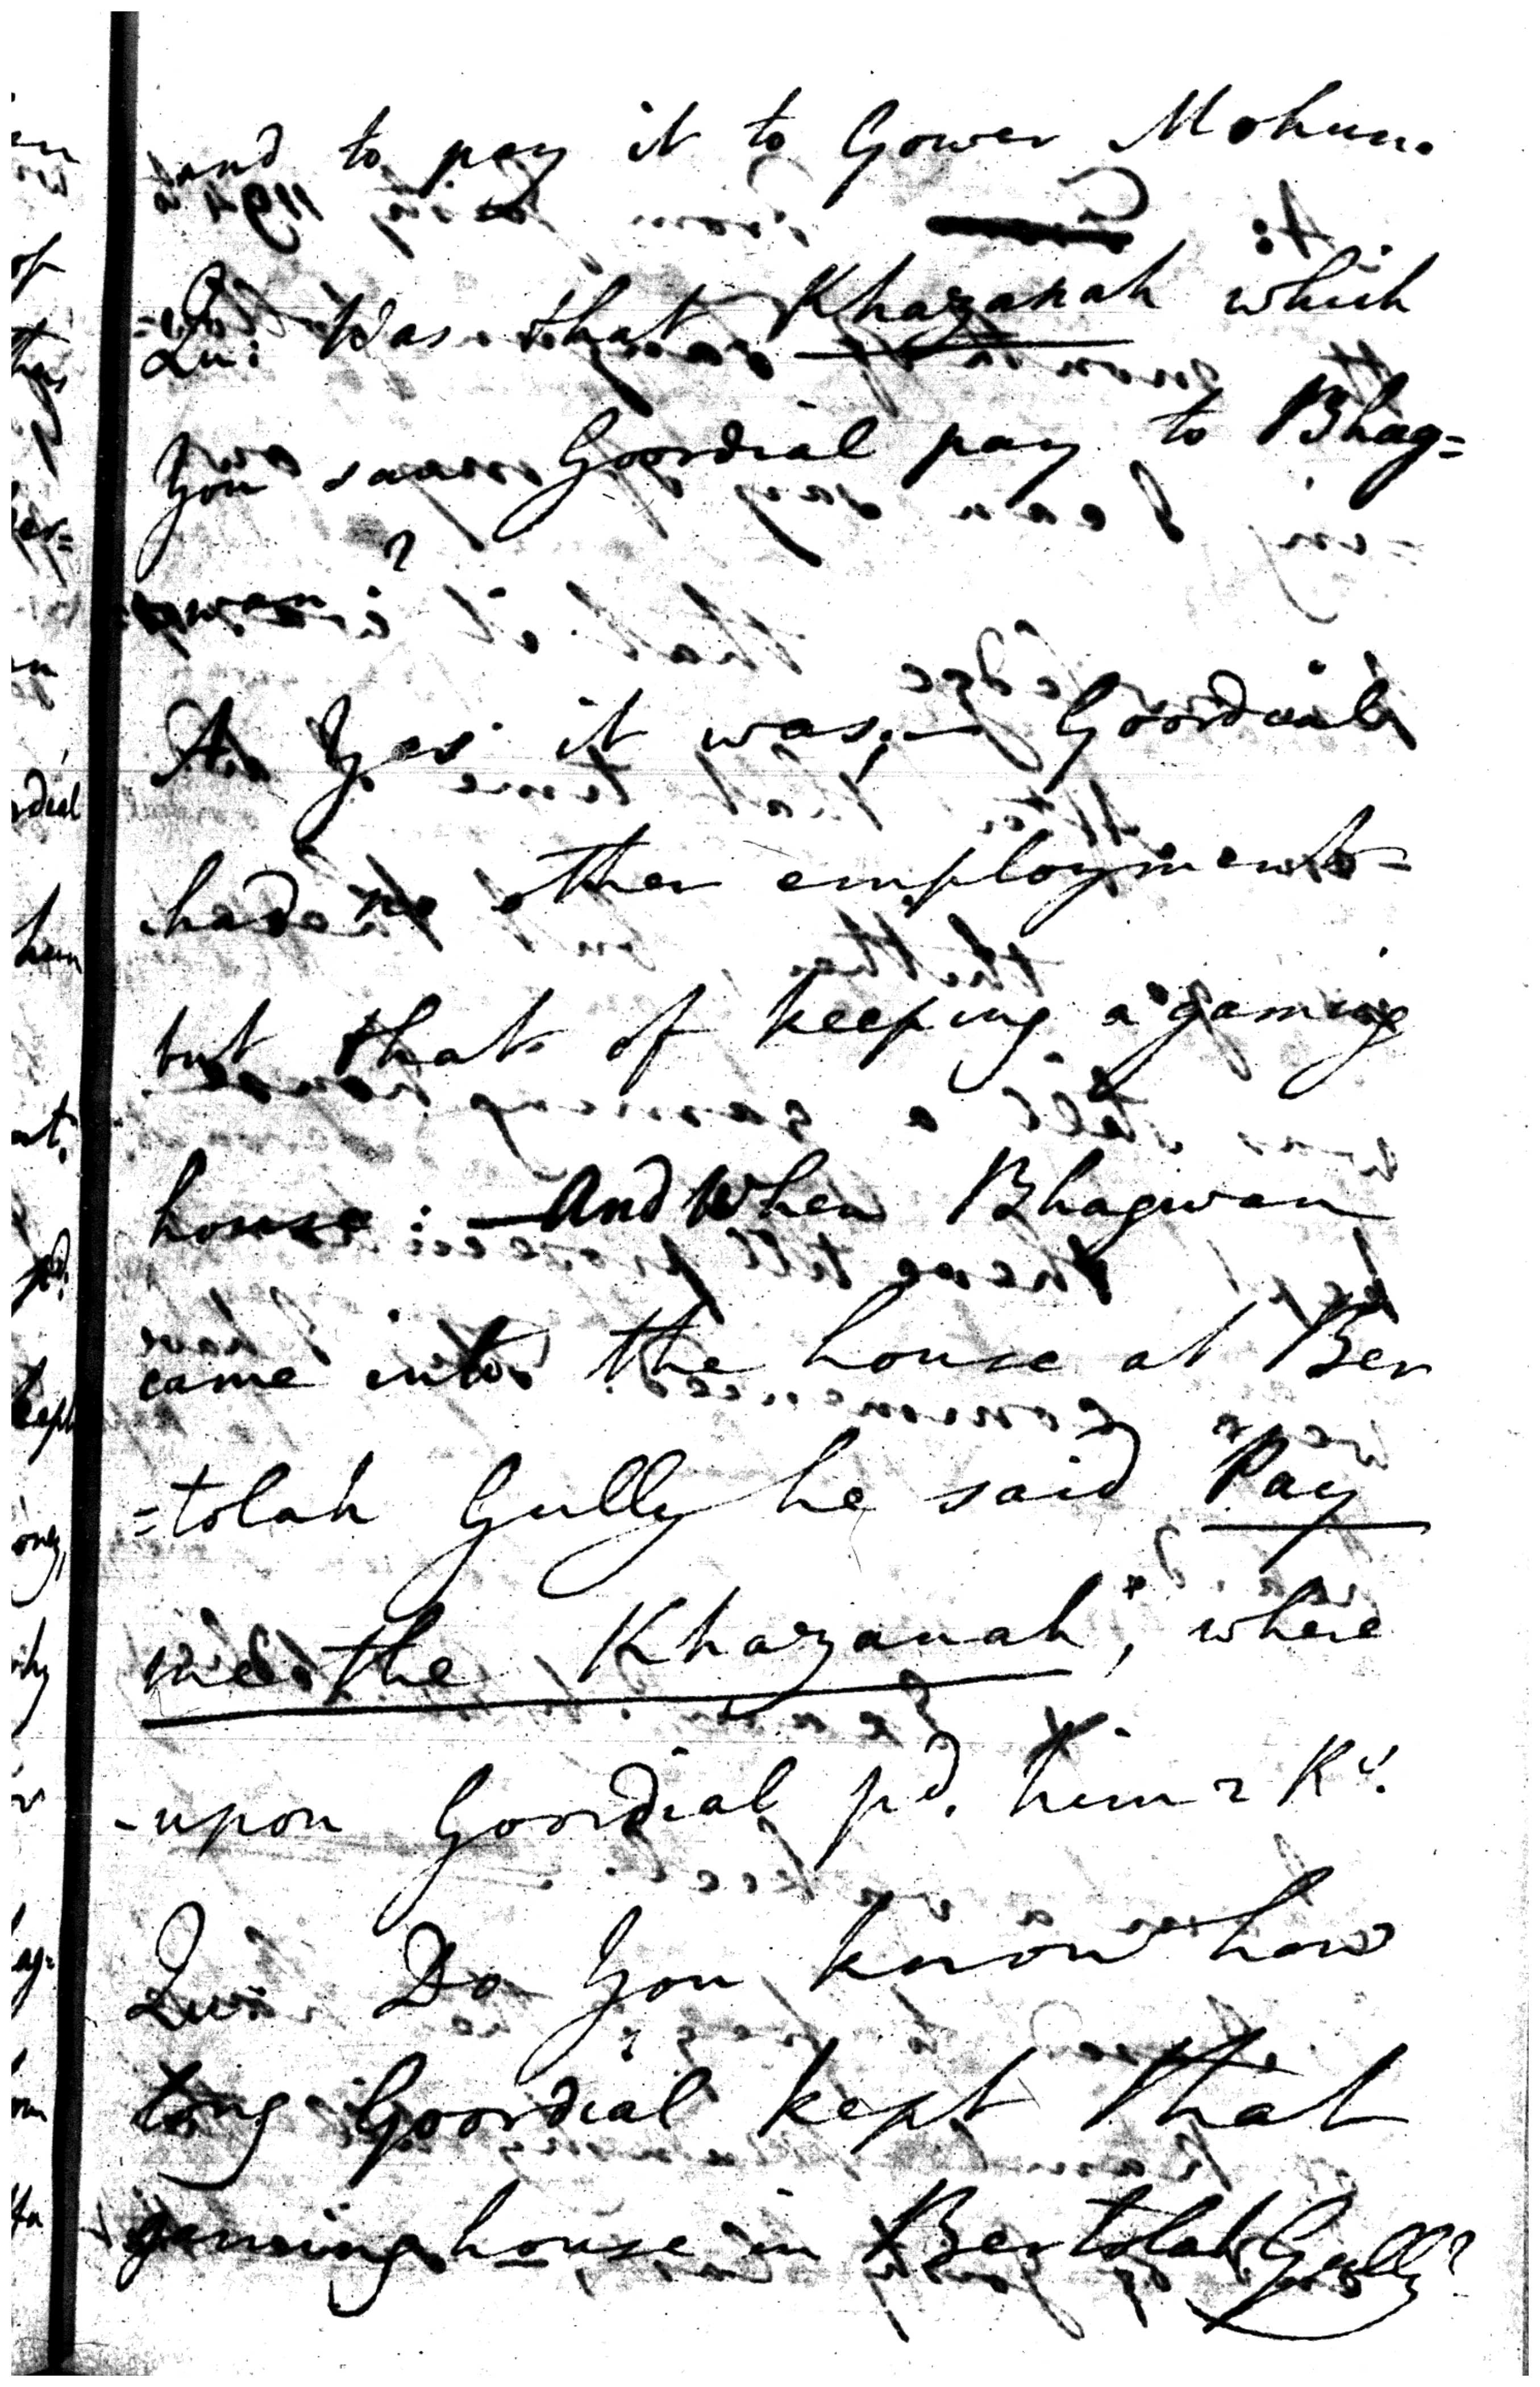 and to pay it to Gower Mohun.
Qu: Was that Khazanah which
You saw Goordial pay to Bhag=
=wan?
A. Yes it was; — Goordial
had no other employment
but that of keeping a gaming
house: — And When Bhagwan
came into the house at Ber
=tolah Gully he said Pay
me the Khazanah, where
-upon Goordial pd. him 2 Rs.
Qu: Do You know how
long Goordial kept that
gaming house in Bertolah Gully?